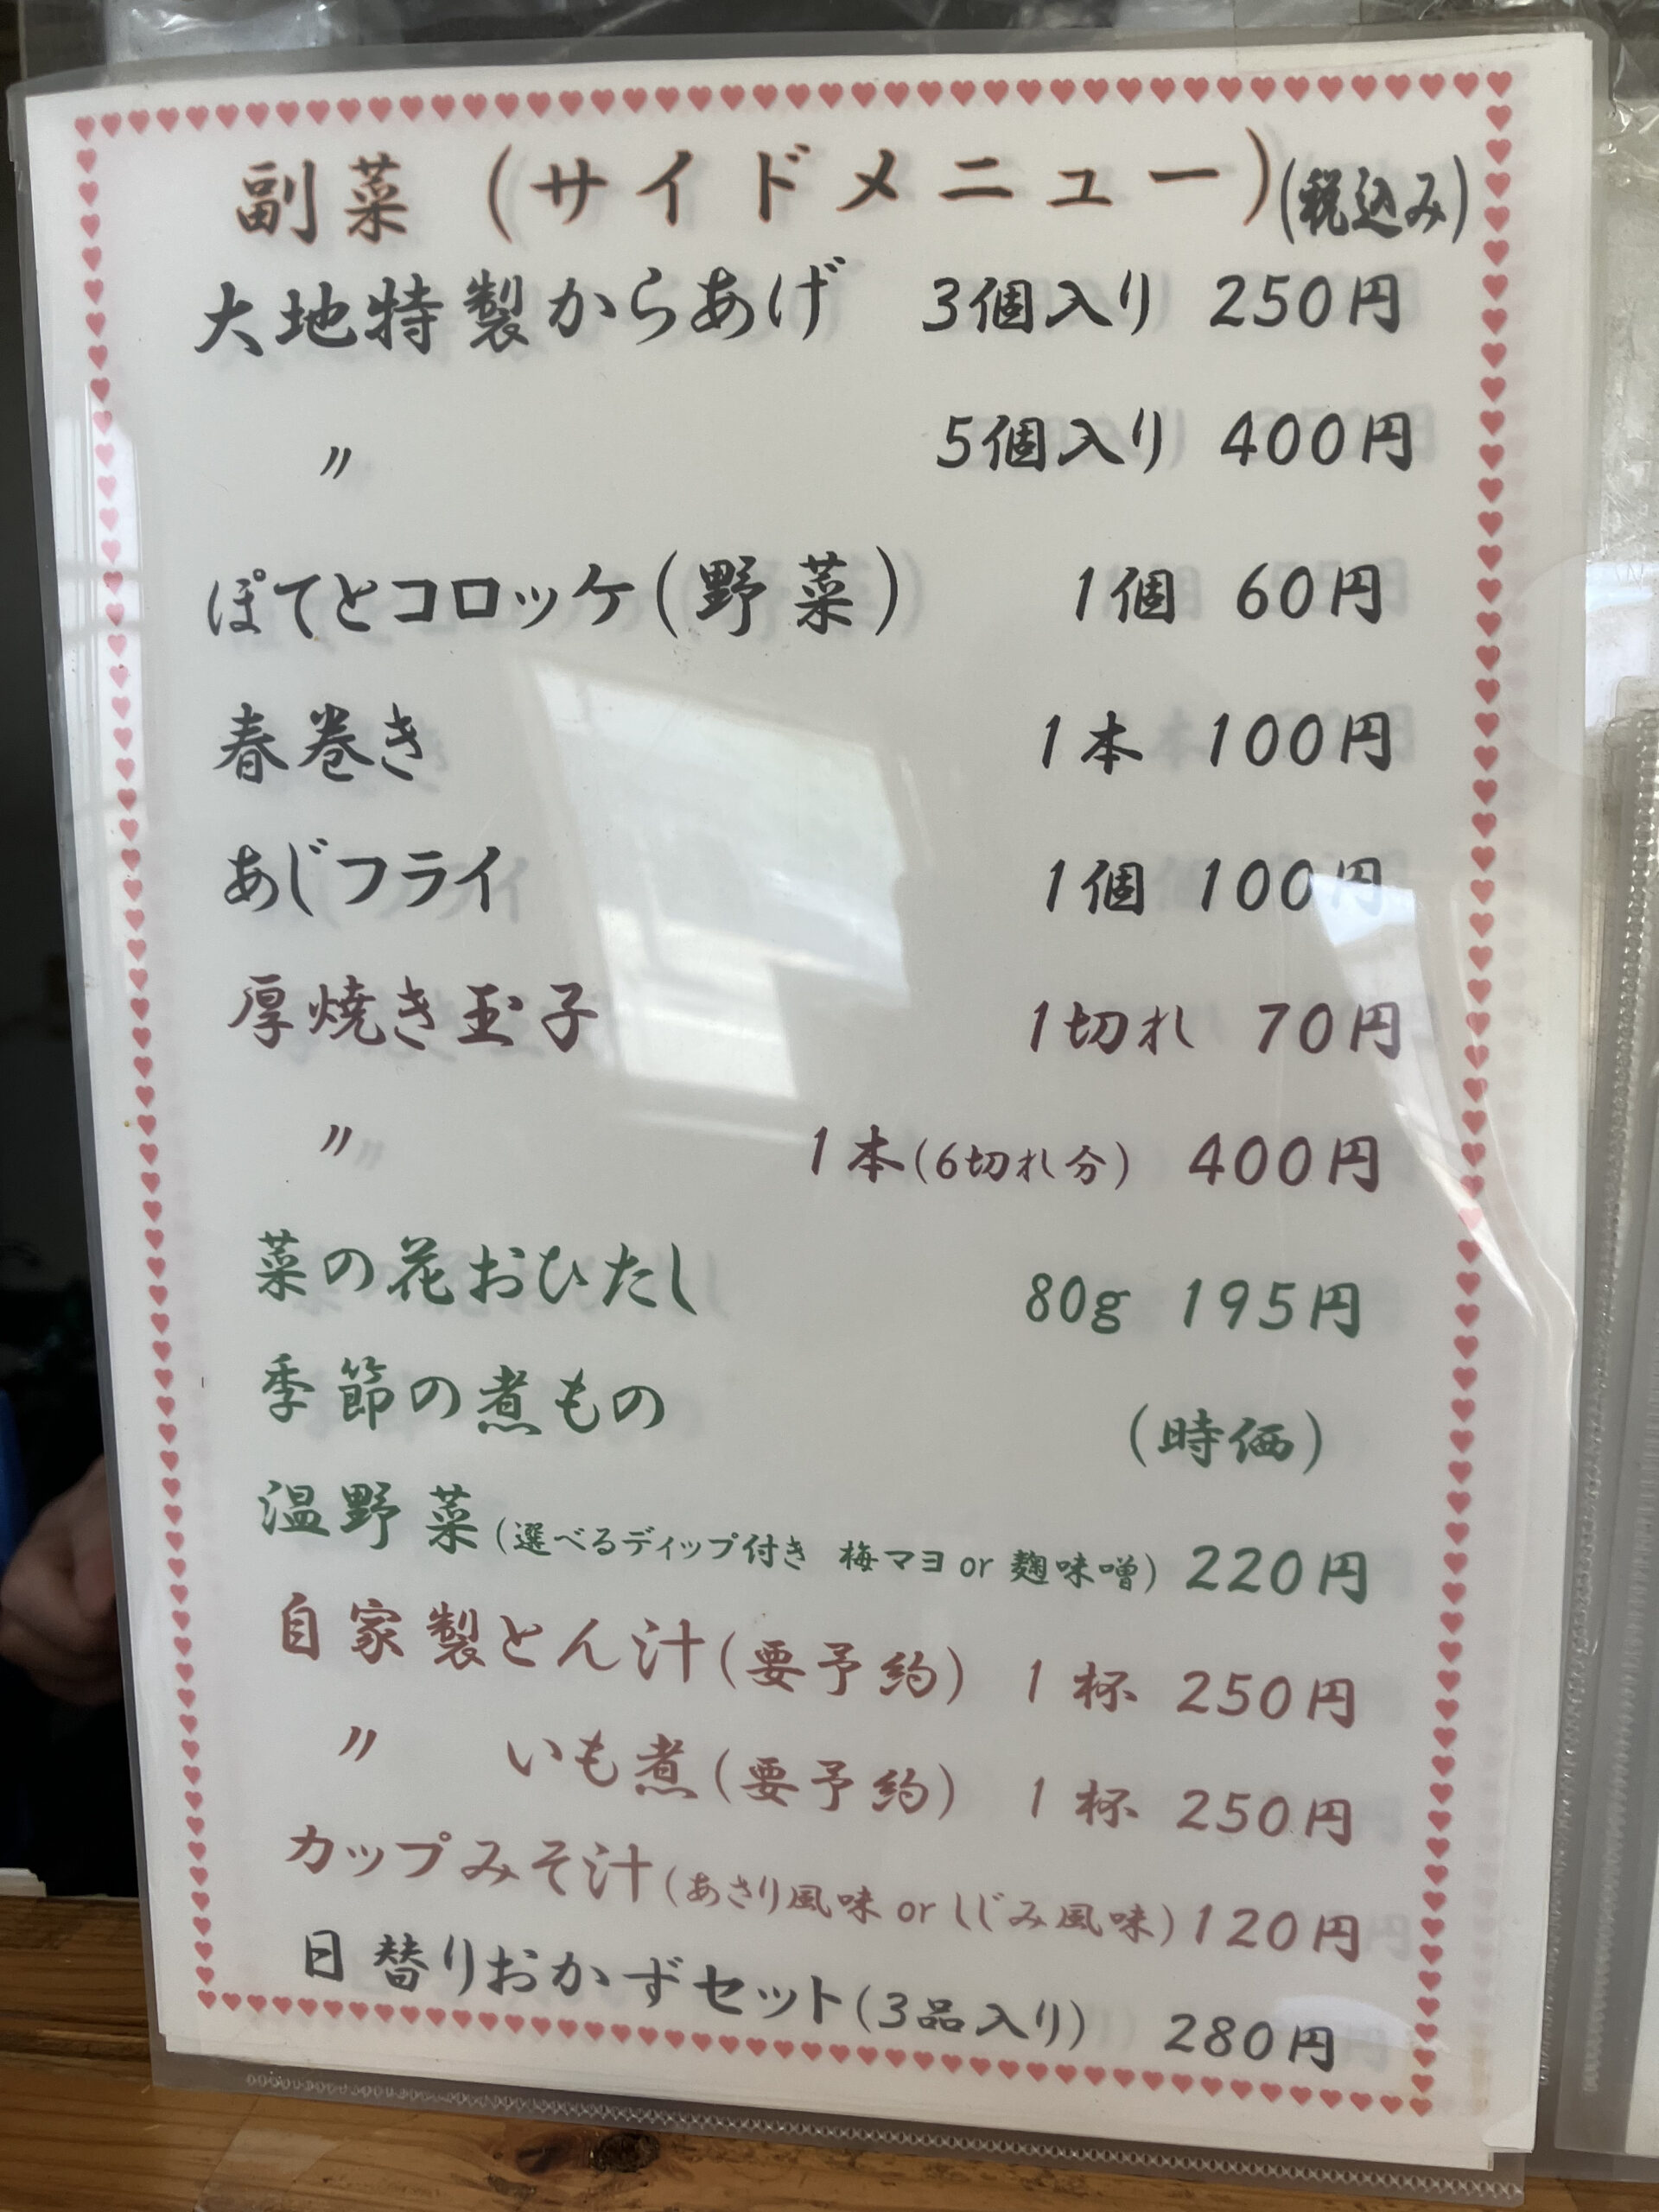 副菜 (サイドメニュー)(税込み)
大地特製からあげ 3個入り 250円
〃 5個入り 400円
ぽてとコロッケ(野菜) 1個 60円
春巻き 1本 100円
あじフライ 1個 100円
厚焼き玉子 1切れ 70円
〃 1本(6切れ分) 400円
菜の花おひたし 80g 195円
季節の煮もの (時価)
温野菜(選べるディップ付き 梅マヨor麹味噌) 220円
自家製とん汁(要予約) 1杯 250円
〃 いも煮(要予約) 1杯 250円
カップみそ汁(あさり風味 or しじみ風味) 120円
日替りおかずセット(3品入り) 280円